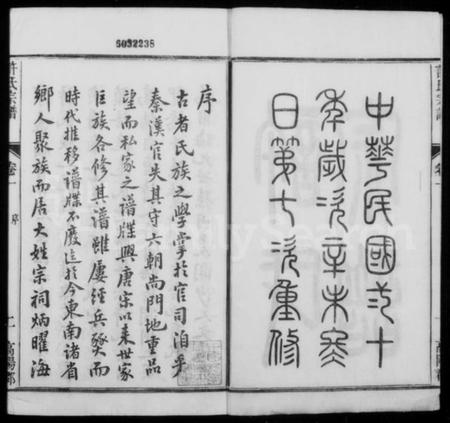 6032238
中華民國弍十
年歲次辛未冬
日第七次重修
序
古者氏族之學掌於官司洎乎
秦漢官失其守六朝尚門地重品
望而私家之譜牒興唐宋以來世家
巨族各修其譜雖屢經兵燹而
時代推移譜牒不廢迄於今東南諸省
鄉人聚族而居大姓宗祠炳曜海
許氏宗譜 卷一 序 二 高陽郡
FamilySearch